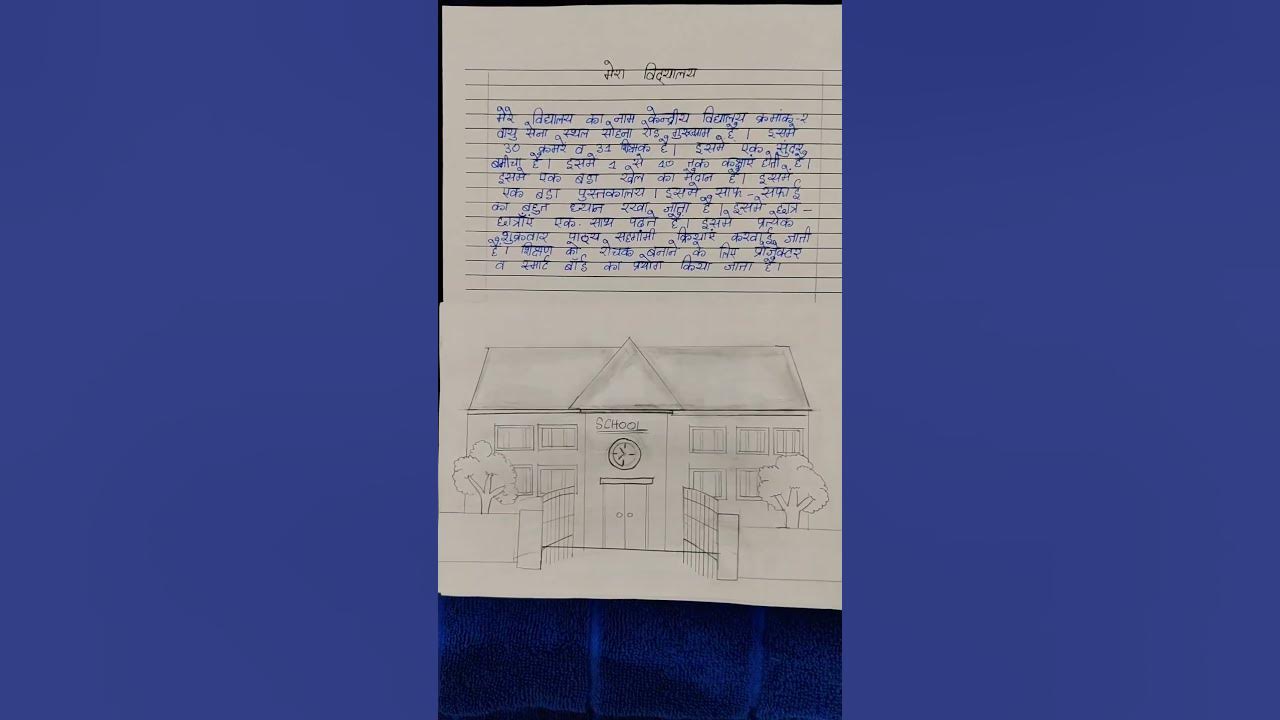 मेरा विद्यालय
मेरे विद्यालय का नाम केन्द्रीय विद्यालय क्रमांक-२
वायु सेना स्थल सोहना रोड गुरुग्राम है। इसमे
30 कमरे व 31 शिक्षक है। इसमे एक सुंदर
बगीचा है। इसमे 1 से 10 तक कक्षाएं होती है।
इसमे एक बडा खेल का मैदान है। इसमें
एक बडा पुस्तकालय। इसमे साफ-सफाई
का बहुत ध्यान रखा जाता है। इसमे छात्र-
छात्राएं एक साथ पढ़ते है। इसमे प्रत्येक
शुक्रवार पाठ्य सहगामी क्रियाएं करवाई जाती
है। शिक्षण को रोचक बनाने के लिए प्रोजेक्टर
व स्मार्ट बोर्ड का प्रयोग किया जाता है।
SCHOOL